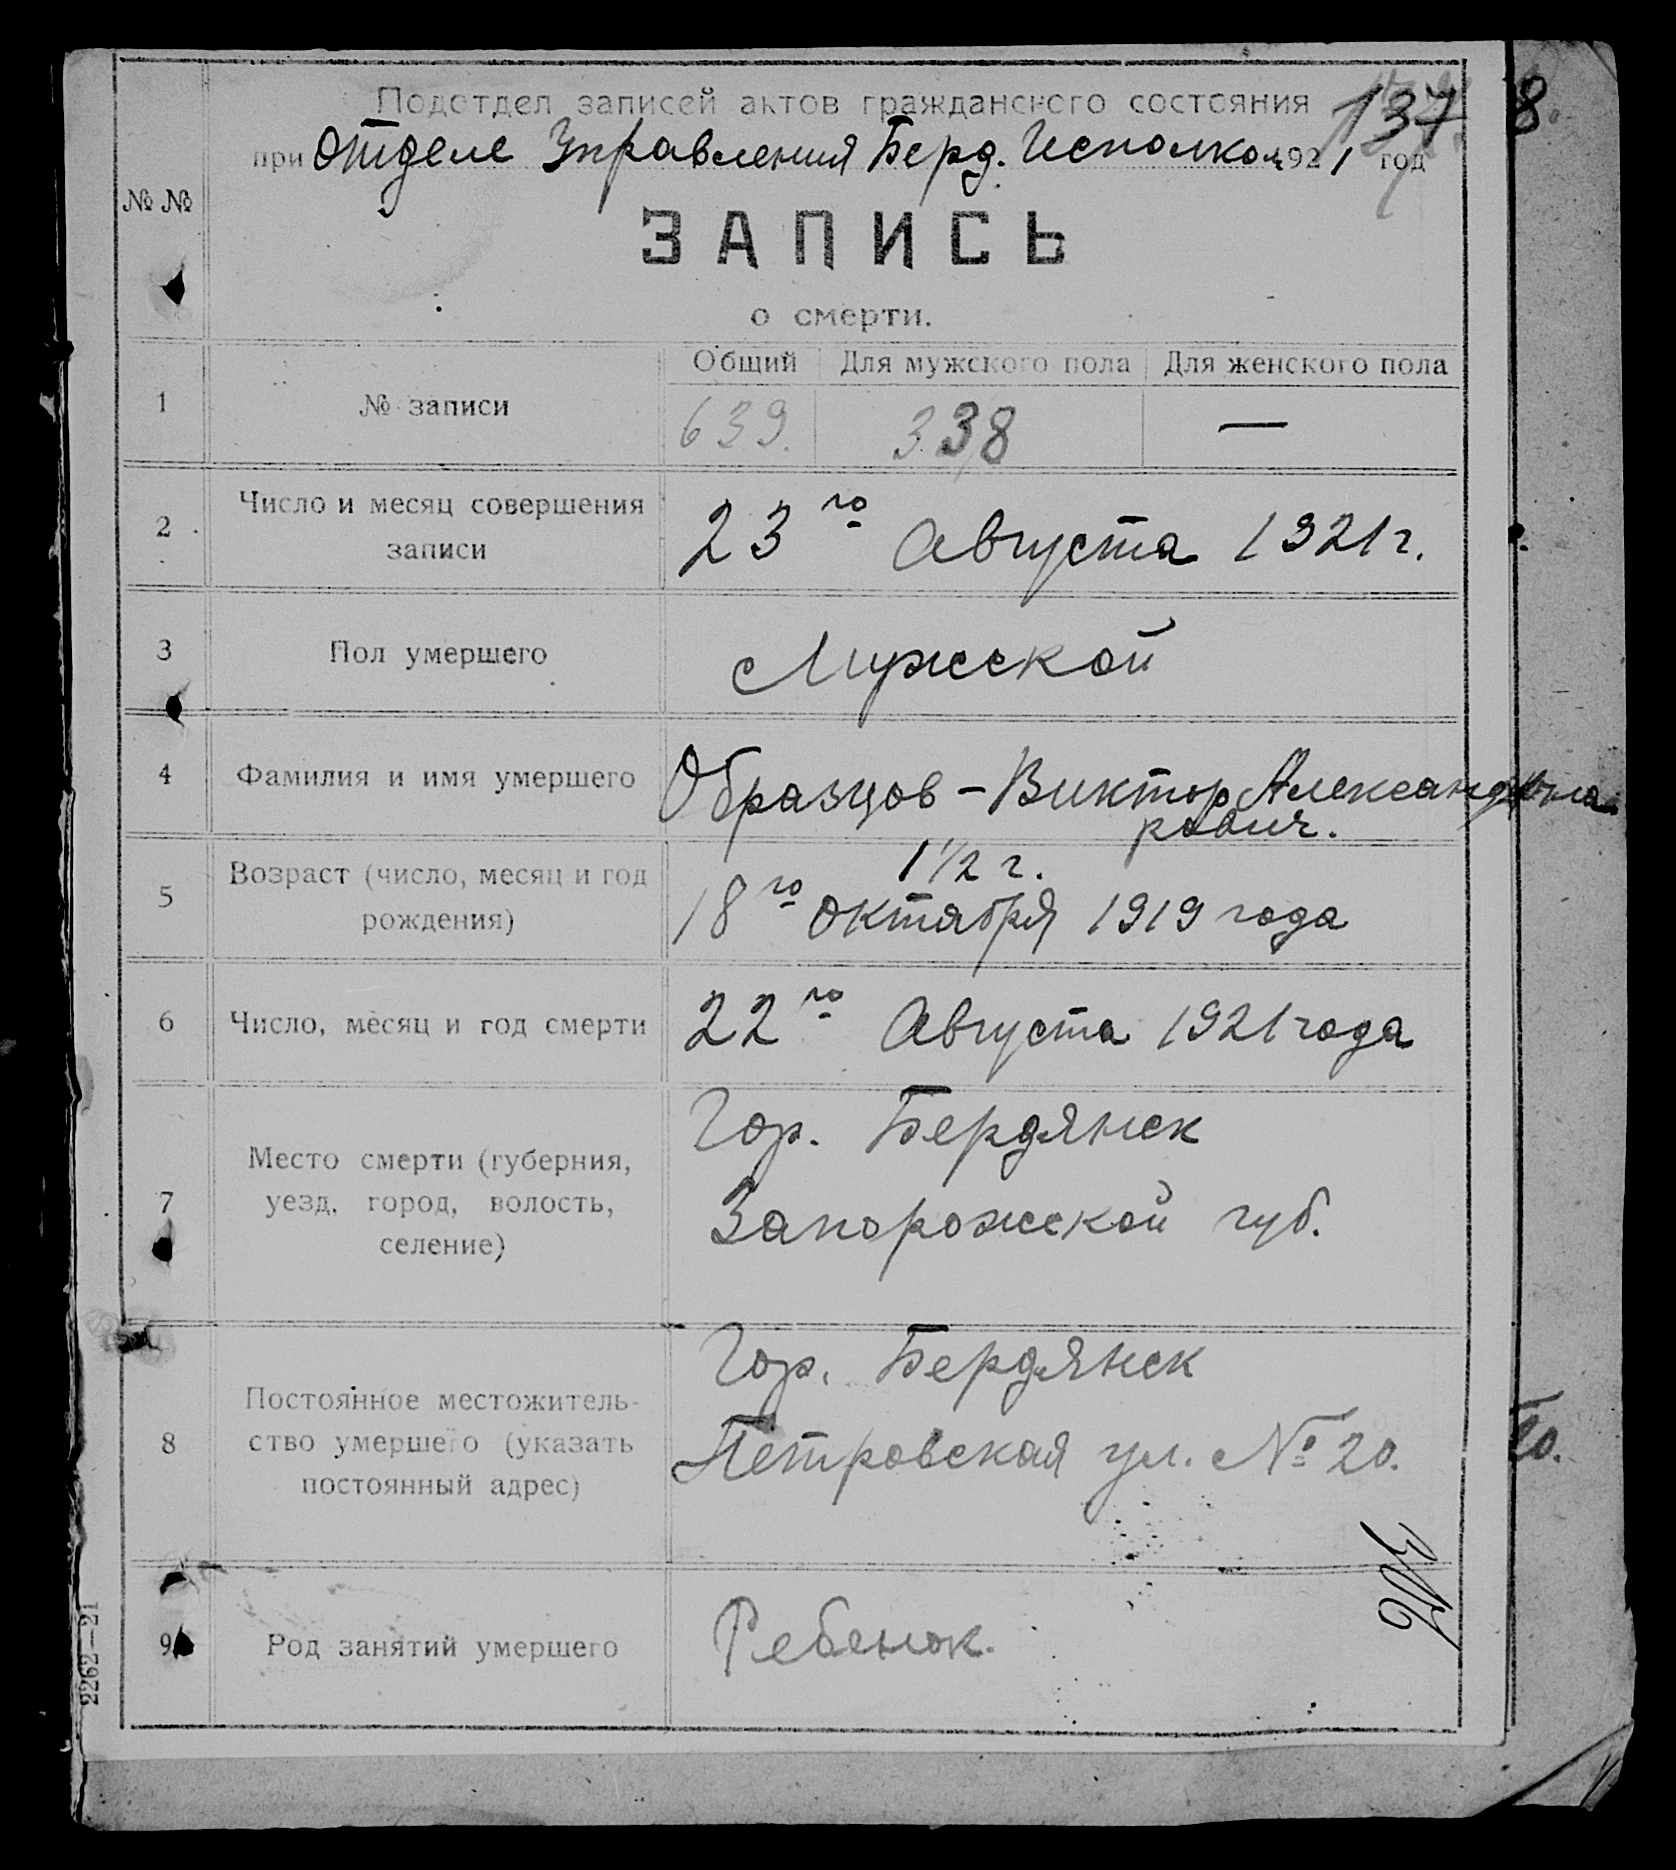 Подотдел записей актов гражданского состояния 137 8
при Отделе Управления Берд. Исполком 1921 год
№ №
ЗАПИСЬ
о смерти.
Общий Для мужского пола Для женского пола
1 № записи 639. 338 —
2 Число и месяц совершения
записи 23го Августа 1921 г.
3 Пол умершего Мужской
4 Фамилия и имя умершего Образцов – Виктор Александ
рович.
1 1/2 г.
5 Возраст (число, месяц и год
рождения) 18го октября 1919 года
6 Число, месяц и год смерти 22го Августа 1921 года
Гор. Бердянск
7 Место смерти (губерния,
уезд, город, волость,
селение) Запорожской губ.
Гор. Бердянск
8 Постоянное местожитель-
ство умершего (указать
постоянный адрес) Петровская ул. № 20.
9 Род занятий умершего Ребенок.
2262—21